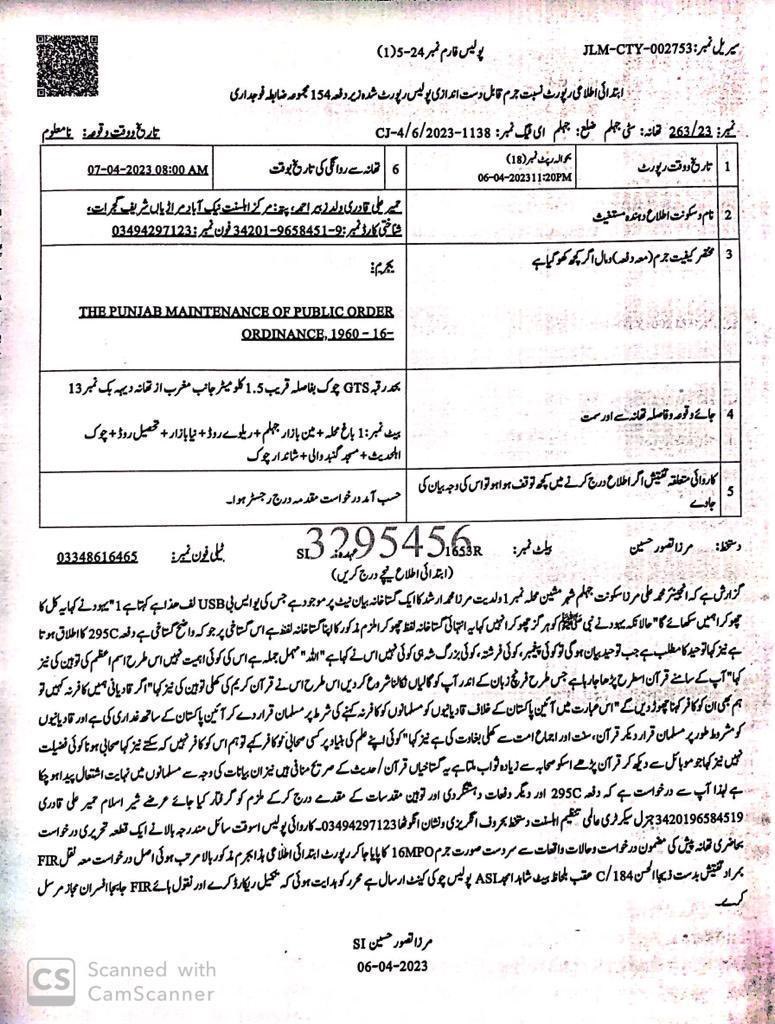 سیریل نمبر: JLM-CTY-002753
پولیس فارم نمبر 24-5(1)
ابتدائی اطلاعی رپورٹ نسبت جرم قابل دست اندازی پولیس رپورٹ شدہ زیر دفعہ 154 مجموعہ ضابطہ فوجداری
نمبر: 263/23 تھانہ: سٹی جہلم ضلع: جہلم ای ٹیگ نمبر: CJ-4/6/2023-1138 تاریخ و وقت وقوعہ: نامعلوم
1 تاریخ و وقت رپورٹ
بحوالہ رپٹ نمبر (18)
06-04-2023 11:20PM
6 تھانہ سے روانگی کی تاریخ بوقت
07-04-2023 08:00 AM
2 نام و سکونت اطلاع دہندہ مستغیث
عمیر علی قادری ولد زبیر احمد، پتہ: مرکز اہلسنت نیک آباد مراڑیاں شریف گجرات،
شناختی کارڈ نمبر: 34201-9658451-9 فون نمبر: 03494297123
3 مختصر کیفیت جرم (معہ دفعہ) و مال اگر کچھ کھو گیا ہے
بجرم:
THE PUNJAB MAINTENANCE OF PUBLIC ORDER
ORDINANCE, 1960 - 16-
4 جائے وقوعہ و فاصلہ تھانہ سے اور سمت
بحد رقبہ GTS چوک بفاصلہ قریب 1.5 کلومیٹر جانب مغرب از تھانہ دیہہ بک نمبر 13
بیٹ نمبر: 1 باغ محلہ + مین بازار جہلم + ریلوے روڈ + نیا بازار + تحصیل روڈ + چوک
اہلحدیث + مسجد گنبد والی + شاندار چوک
5 کاروائی متعلقہ تفتیش اگر اطلاع درج کرنے میں کچھ توقف ہوا ہو تو اس کی وجہ بیان کی
جاوے
حسب آمد درخواست مقدمہ درج رجسٹر ہوا۔
دستخط: مرزا تصور حسین بیلٹ نمبر: 1653R عہدہ: SI ٹیلی فون نمبر: 03348616465
3295456
(ابتدائی اطلاع نیچے درج کریں)
گزارش ہے کہ انجینئر محمد علی مرزا سکونت جہلم شہر مشین محلہ نمبر 1 ولدیت مرزا محمد ارشد کا ایک گستاخانہ بیان نیٹ پر موجود ہے جس کی یو ایس بی USB لف ھذا ہے کہتا ہے "1 یہود نے کہا یہ کل کا
چھوکرا ہمیں سکھائے گا" حالانکہ یہود نے نبی ﷺ کو ہرگز چھوکرا نہیں کہا یہ انتہائی گستاخانہ لفظ چھوکرا ملزم مذکور کا اپنا گستاخانہ لفظ ہے اس گستاخی پر جو کہ واضح گستاخی ہے دفعہ 295C کا اطلاق ہوتا
ہے نیز کہا توحید کا مطلب ہے جب توحید بیان ہوگی تو کوئی پیغمبر، کوئی فرشتہ، کوئی بزرگ شہ ہی کوئی نہیں اس نے کہا ہے "اللہ" مہمل جملہ ہے اس کی کوئی اہمیت نہیں اس طرح اسم اعظم کی توہین کی نیز
کہا "آپ کے سامنے قرآن اسطرح پڑھا جا رہا ہے جس طرح فرنچ زبان کے اندر آپ کو گالیاں نکالنا شروع کر دیں اس طرح اس نے قرآن کریم کی کھلی توہین کی نیز کہا "اگر قادیانی ہمیں کافر نہ کہیں تو
ہم بھی ان کو کافر کہنا چھوڑ دیں گے" اس عبارت میں آئین پاکستان کے خلاف قادیانیوں کو مسلمانوں کو کافر نہ کہنے کی شرط پر مسلمان قرار دے کر آئین پاکستان کے ساتھ غداری کی ہے اور قادیانیوں
کو مشروط طور پر مسلمان قرار دیکر قرآن، سنت اور اجماع امت سے کھلی بغاوت کی ہے نیز کہا "کوئی اپنے علم کی بنیاد پر کسی صحابی کو کافر کہے تو ہم اس کو کافر نہیں کہہ سکتے نیز کہا صحابی ہونا کوئی فضیلت
نہیں نیز کہا جو موبائل سے دیکھ کر قرآن پڑھے اسکو صحابہ سے زیادہ ثواب ملتا ہے یہ گستاخیاں قرآن/حدیث کے صریح منافی ہیں نیز ان بیانات کی وجہ سے مسلمانوں میں نہایت اشتعال پیدا ہو چکا
ہے لہذا آپ سے درخواست ہے کہ دفعہ 295C اور دیگر دفعات دہشتگردی اور توہین مقدسات کے مقدمے درج کر کے ملزم کو گرفتار کیا جائے عرضے شیر اسلام عمیر علی قادری
3420196584519 جنرل سیکرٹری عالمی تنظیم اہلسنت دستخط بحروف انگریزی و نشان انگوٹھا 03494297123۔ کاروائی پولیس اسوقت سائل مندرجہ بالا نے ایک قطعہ تحریری درخواست
بحاضری تھانہ پیش کی مضمون درخواست و حالات واقعات سے سردست صورت جرم 16MPO کا پایا جا کر رپورٹ ابتدائی اطلاعی ہذا بجرم مذکور بالا مرتب ہوئی اصل درخواست معہ نقل FIR
بمراد تفتیش بدست ذیجاہ الحسن C/184 عقب بلحاظ بیٹ شاہد امجد ASI پولیس چوکی کینٹ ارسال ہے محرر کو ہدایت ہوئی کہ تکمیل ریکارڈ کرے اور نقول ہائے FIR جابجا افسران مجاز مرسل
کرے۔
مرزا تصور حسین SI
06-04-2023
CS Scanned with
CamScanner